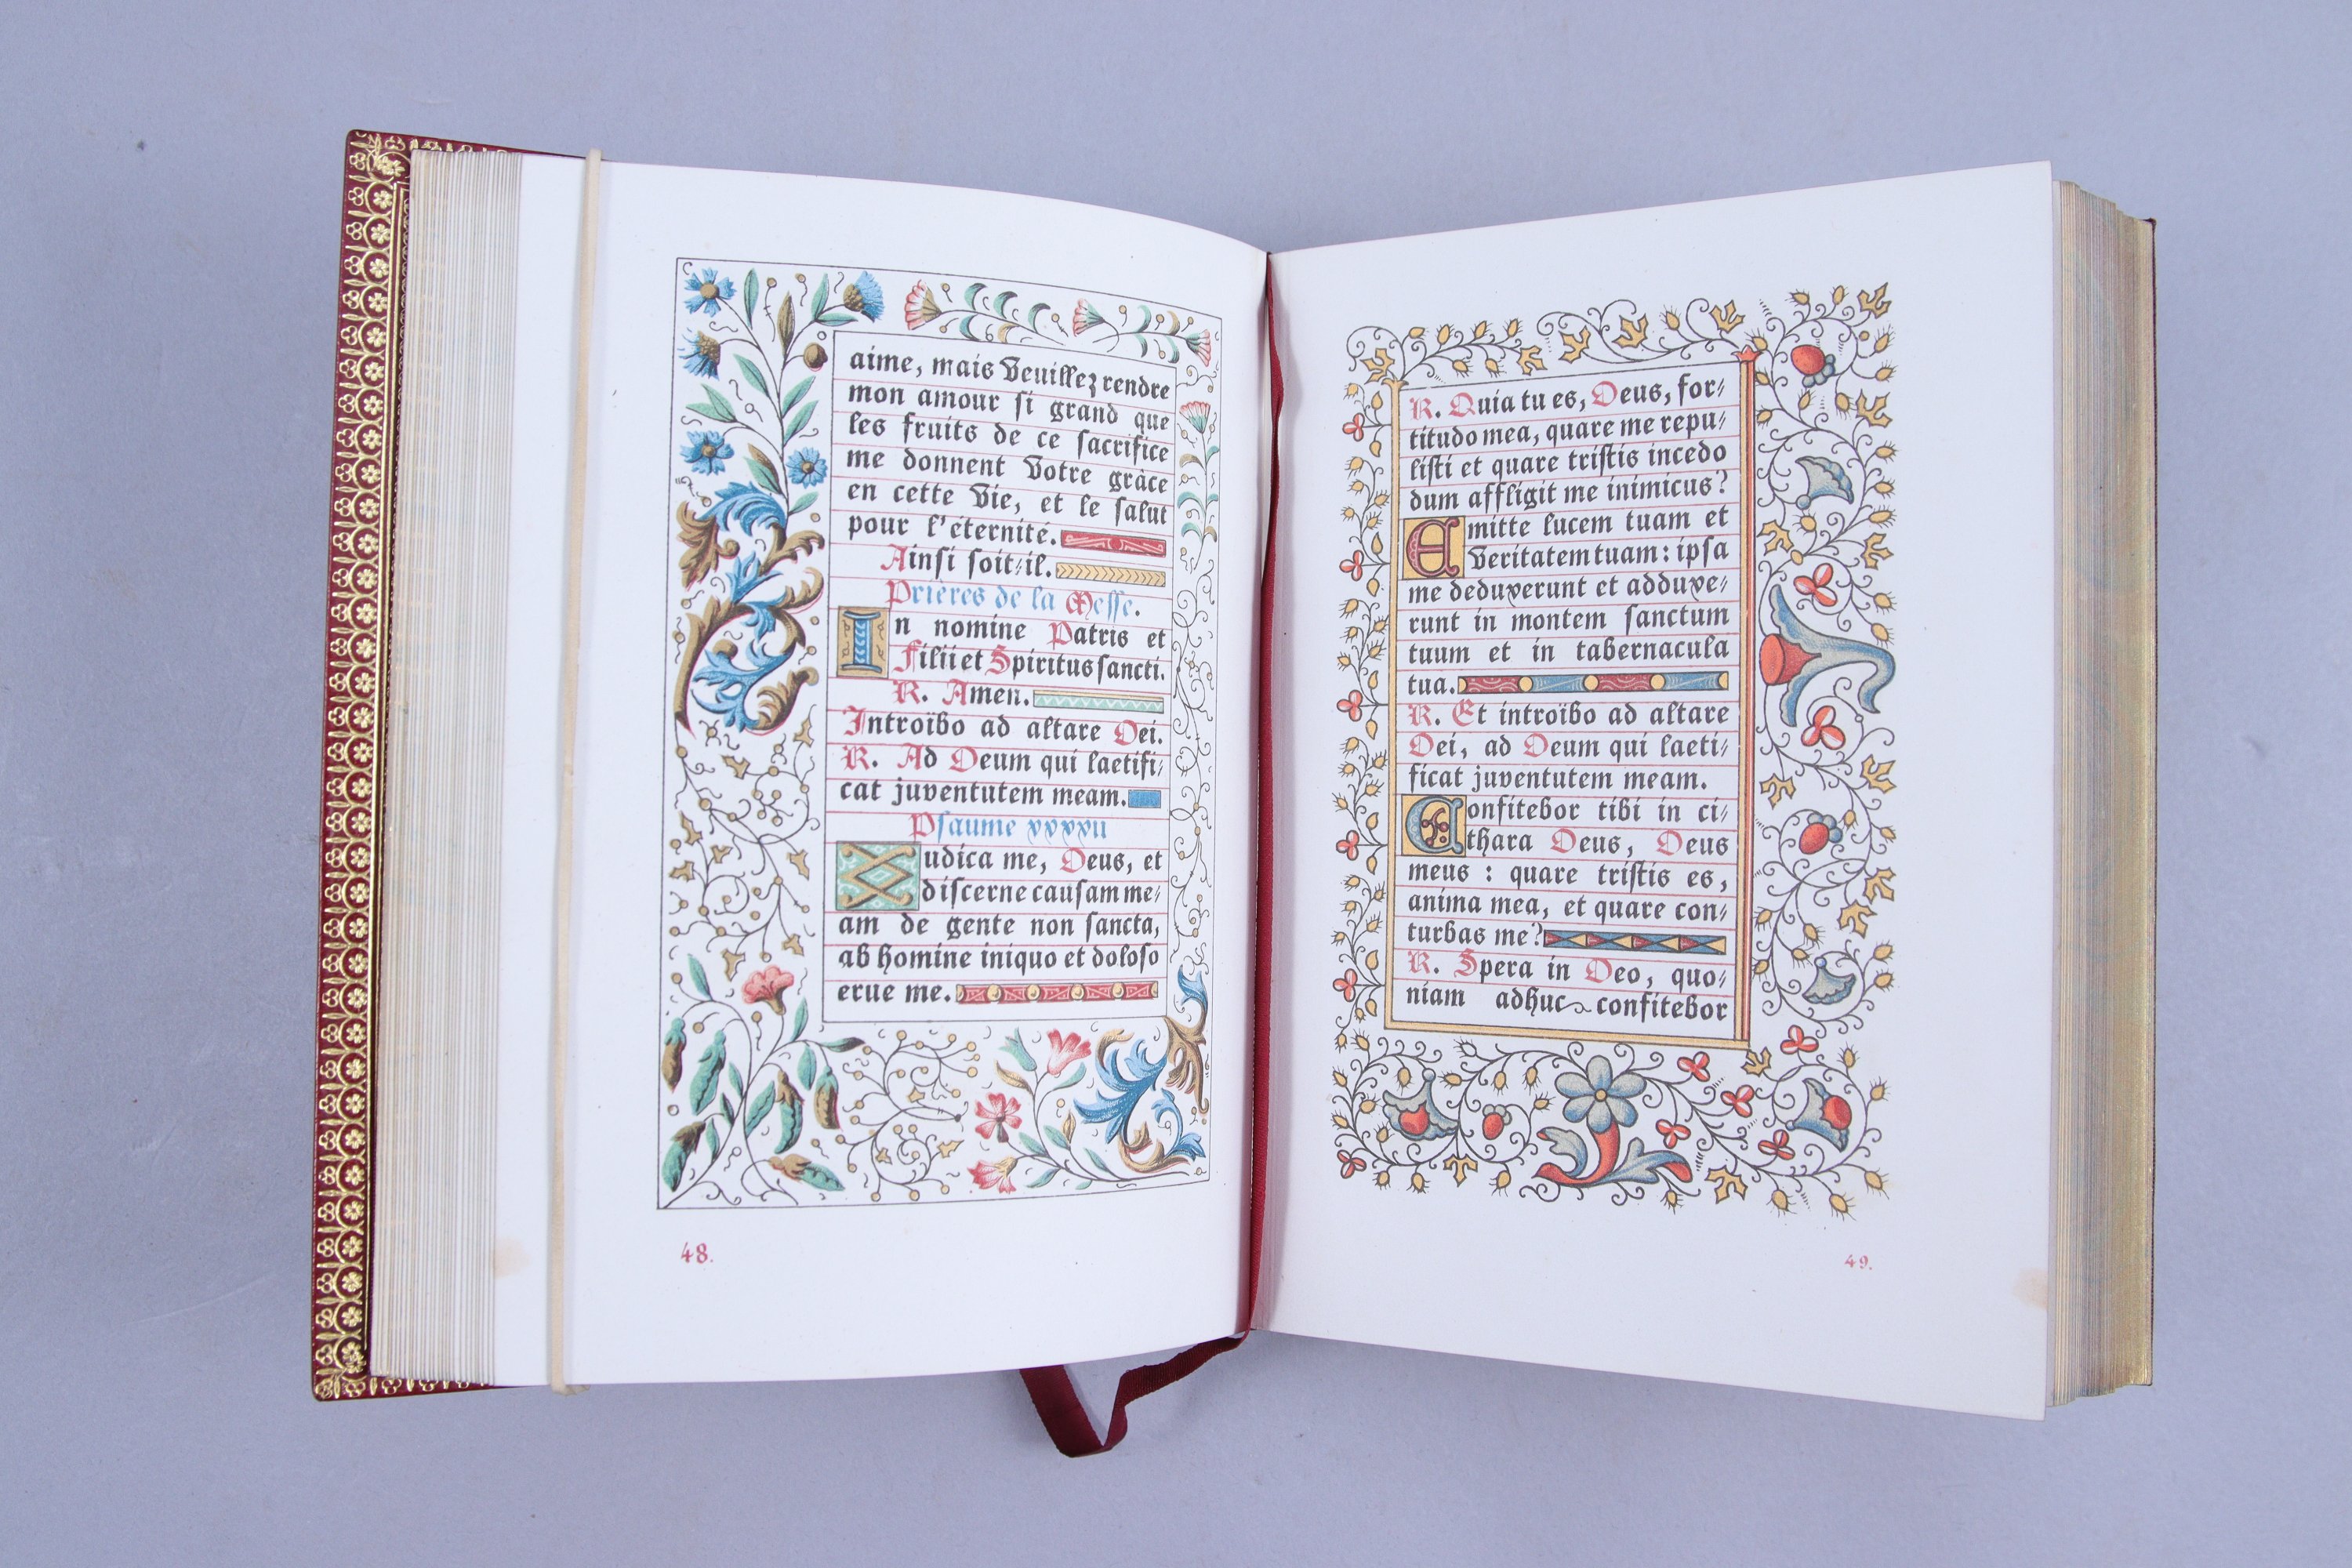 aime, mais Veuillez rendre
mon amour si grand que
les fruits de ce sacrifice
me donnent Votre grâce
en cette Vie, et le salut
pour l'éternité.
Ainsi soit-il.
Prières de la Messe.
In nomine Patris et
Filii et Spiritus sancti.
R. Amen.
Introïbo ad altare Dei.
R. Ad Deum qui laetifi-
cat juventutem meam.
Psaume xxxxii
Judica me, Deus, et
discerne causam me-
am de gente non sancta,
ab homine iniquo et doloso
erue me.
48.
R. Quia tu es, Deus, for-
titudo mea, quare me repu-
listi et quare tristis incedo
dum affligit me inimicus?
Emitte lucem tuam et
Veritatem tuam: ipsa
me deduxerunt et adduxe-
runt in montem sanctum
tuum et in tabernacula
tua.
R. Et introïbo ad altare
Dei, ad Deum qui laeti-
ficat juventutem meam.
Confitebor tibi in ci-
thara Deus, Deus
meus : quare tristis es,
anima mea, et quare con-
turbas me?
R. Spera in Deo, quo-
niam adhuc confitebor
49.